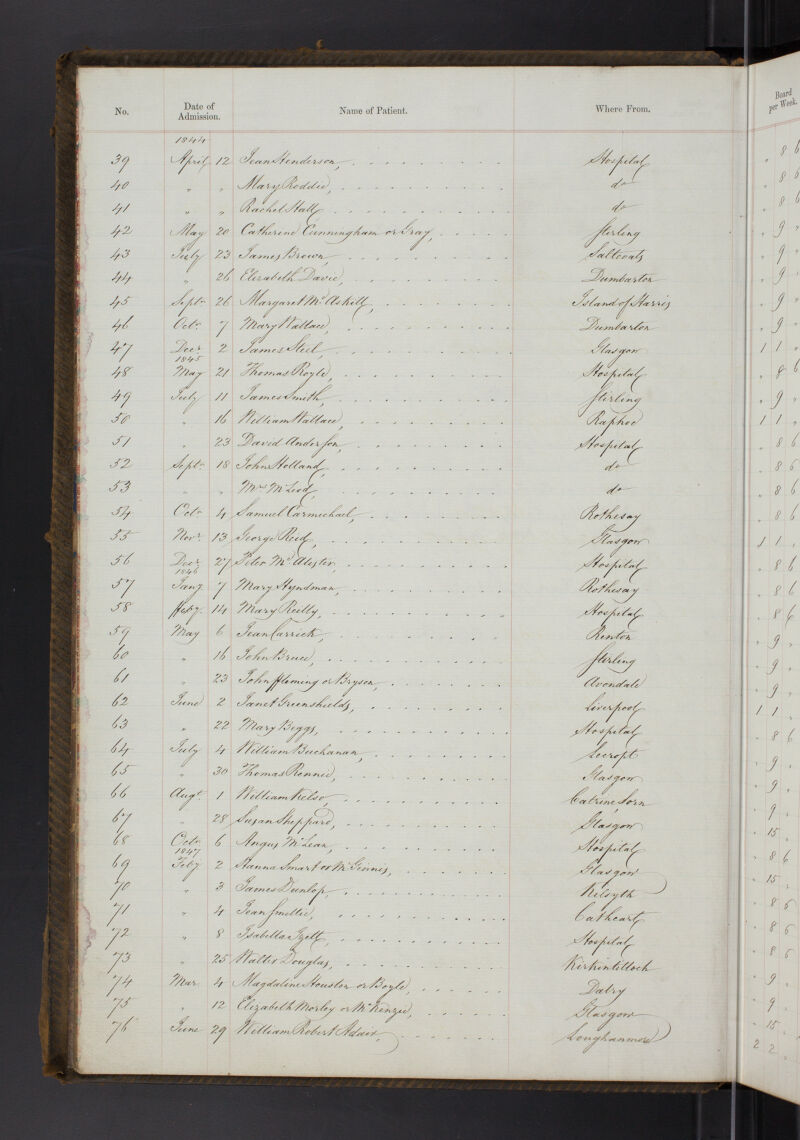 No. Date of Admission. Name of Patient. Where From. Board per Week.
1844
39 April 12 Jean Henderson, Hospital " 8 6
40 " " Mary Roddie, do " 8 6
41 " " Rachel Hall, do " 8 6
42 May 20 Catherine Cunningham or Gray, Stirling " 9 "
43 July 23 James Brown, Saltcoats " 9 "
44 " 26 Elizabeth Davie, Dumbarton " 9 "
45 Septr 26 Margaret McAskill, Island of Harris " 9 "
46 Octr 7 Mary Wallace, Dumbarton " 9 "
47 Decr 2 James Steel, Glasgow 1 1 "
1845
48 May 21 Thomas Royle, Hospital " 8 6
49 July 11 James Smith, Stirling " 9 "
50 " 16 William Wallace, Raphoe 1 1 "
51 " 23 David Anderson, Hospital " 8 6
52 Septr 18 John Holland, do " 8 6
53 " " Mrs McLeod, do " 8 6
54 Octr 4 Samuel Carmichael, Rothesay " 8 6
55 Novr 13 George Reid, Glasgow 1 1 "
56 Decr 27 Peter McAlester Hospital " 8 6
1846
57 Jany 7 Mary Hyndman, Rothesay " 8 6
58 Feby 14 Mary Reilly, Hospital " 8 6
59 May 6 Jean Carrick, Renton " 9 "
60 " 16 John Bruce, Stirling " 9 "
61 " 23 John Fleming or Bryson, Avondale " 9 "
62 June 2 Janet Greenshields, Liverpool 1 1 "
63 " 22 Mary Beggs, Hospital " 8 6
64 July 4 William Buchanan, Lecropt " 9 "
65 " 30 Thomas Rennie, Glasgow " 9 "
66 Augt 1 William Kelso, Catrine, Sorn " 9 "
67 " 28 Susan Sheppard, Glasgow " 15 "
68 Octr 6 Angus McLean, Hospital " 8 6
1847
69 Feby 2 Hanna Smart or McGinnes, Glasgow " 15 "
70 " 3 James Dunlop, Kilsyth " 8 6
71 " 4 Jean Smellie, Cathcart " 8 6
72 " 8 Isabella Izett, Hospital " 8 6
73 " 25 Walter Douglas, Kirkintilloch " 9 "
74 Mar 4 Magdaline Houston or Boyle, Dalry " 9 "
75 " 12 Elizabeth Morley or McKenzie, Glasgow " 15 "
76 June 29 William Robert Adair, Loughanmore 2 2 "